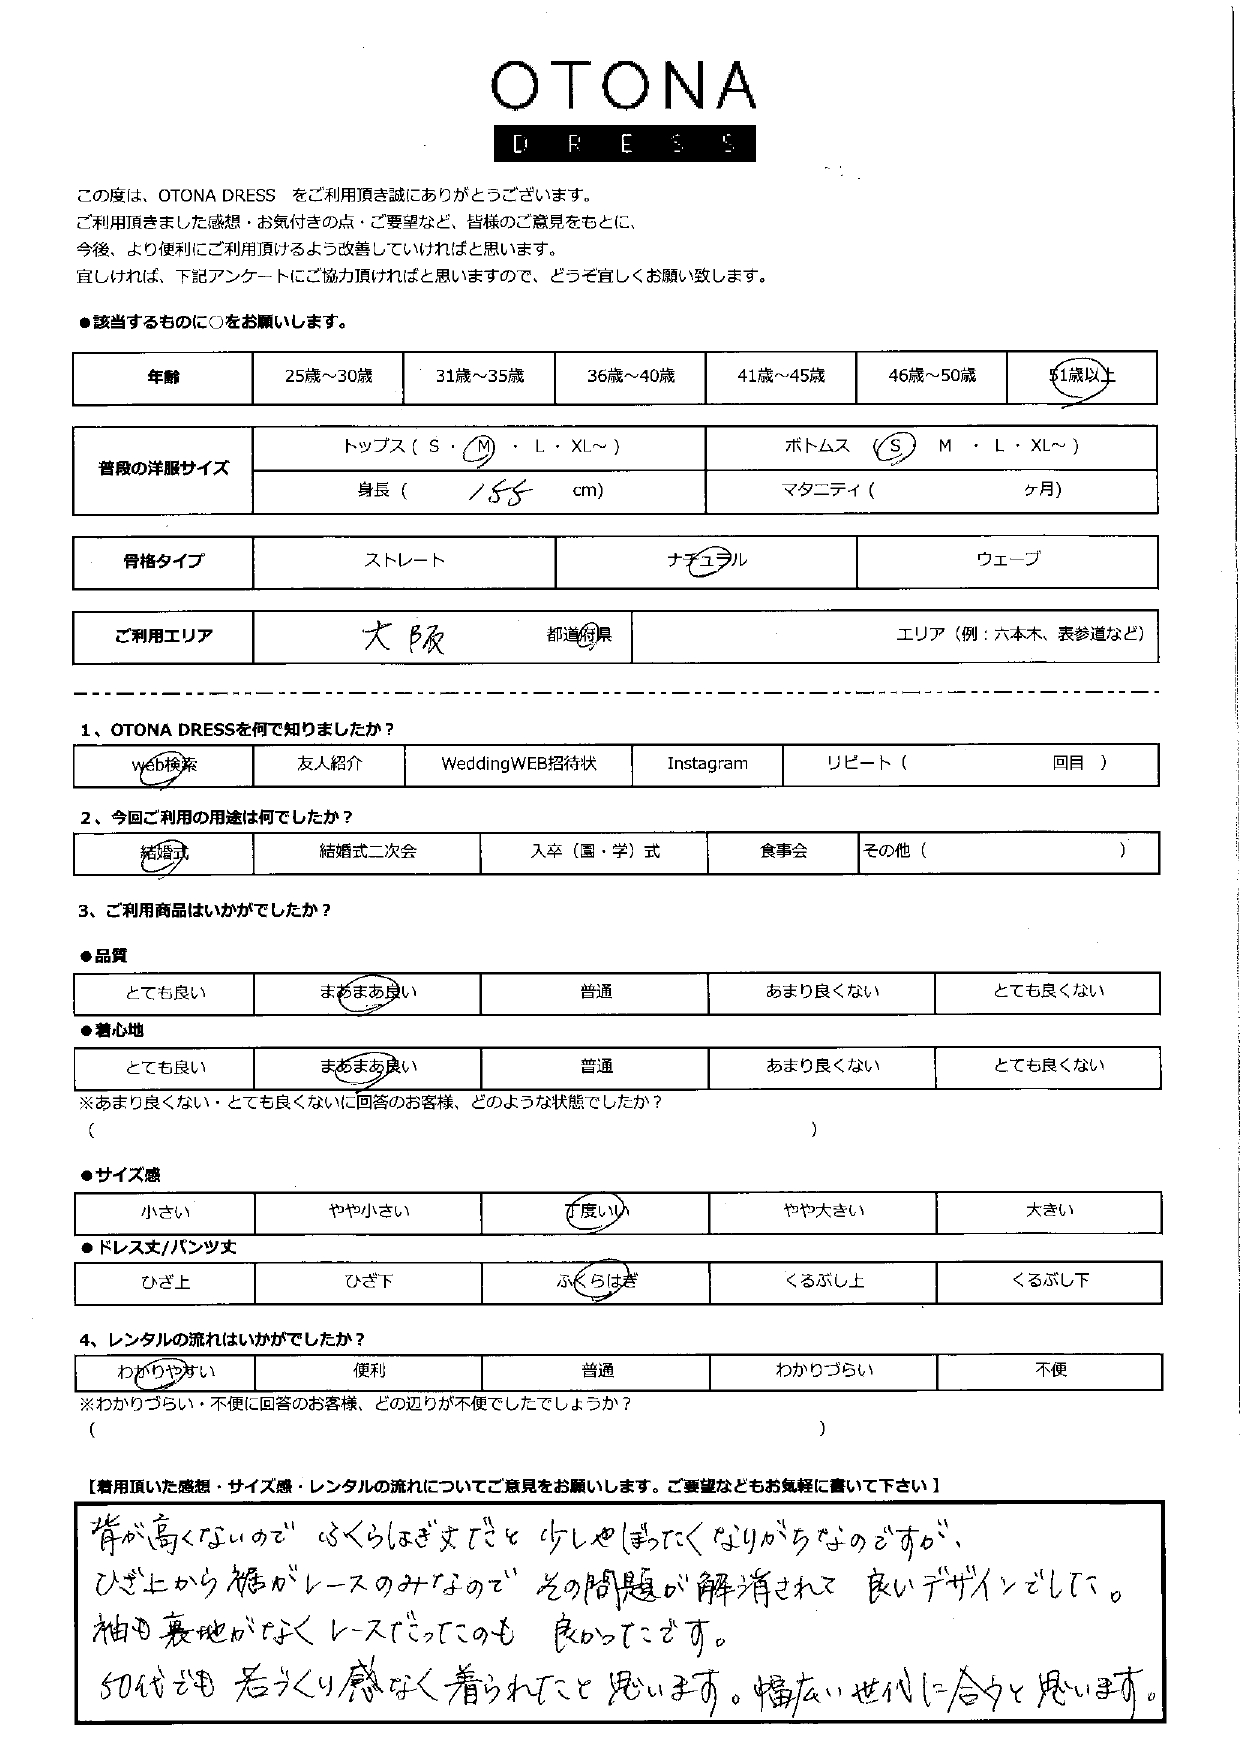 OTONA
DRESS
この度は、OTONA DRESS をご利用頂き誠にありがとうございます。
ご利用頂きました感想・お気付きの点・ご要望など、皆様のご意見をもとに、
今後、より便利にご利用頂けるよう改善していければと思います。
宜しければ、下記アンケートにご協力頂ければと思いますので、どうぞ宜しくお願い致します。
●該当するものに○をお願いします。
年齢 25歳～30歳 31歳～35歳 36歳～40歳 41歳～45歳 46歳～50歳 51歳以上
普段の洋服サイズ トップス ( S ・ M ・ L ・ XL～ ) ボトムス ( S M ・ L ・ XL～ )
身長 ( 155 cm) マタニティ ( ヶ月)
骨格タイプ ストレート ナチュラル ウェーブ
ご利用エリア 大阪 都道府県 エリア（例：六本木、表参道など）
1、OTONA DRESSを何で知りましたか？
web検索 友人紹介 WeddingWEB招待状 Instagram リピート ( 回目 )
2、今回ご利用の用途は何でしたか？
結婚式 結婚式二次会 入卒（園・学）式 食事会 その他 ( )
3、ご利用商品はいかがでしたか？
●品質
とても良い まあまあ良い 普通 あまり良くない とても良くない
●着心地
とても良い まあまあ良い 普通 あまり良くない とても良くない
※あまり良くない・とても良くないに回答のお客様、どのような状態でしたか？
( )
●サイズ感
小さい やや小さい 丁度いい やや大きい 大きい
●ドレス丈/パンツ丈
ひざ上 ひざ下 ふくらはぎ くるぶし上 くるぶし下
4、レンタルの流れはいかがでしたか？
わかりやすい 便利 普通 わかりづらい 不便
※わかりづらい・不便に回答のお客様、どの辺りが不便でしたでしょうか？
( )
【着用頂いた感想・サイズ感・レンタルの流れについてご意見をお願いします。ご要望などもお気軽に書いて下さい】
背が高くないので ふくらはぎ丈だと 少しやぼったくなりがちなのですが、
ひざ上から裾がレースのみなので その問題が解消されて 良いデザインでした。
袖も裏地がなくレースだったのも 良かったです。
50代でも 若づくり感なく着られたこと思います。幅広い世代に合うと思います。